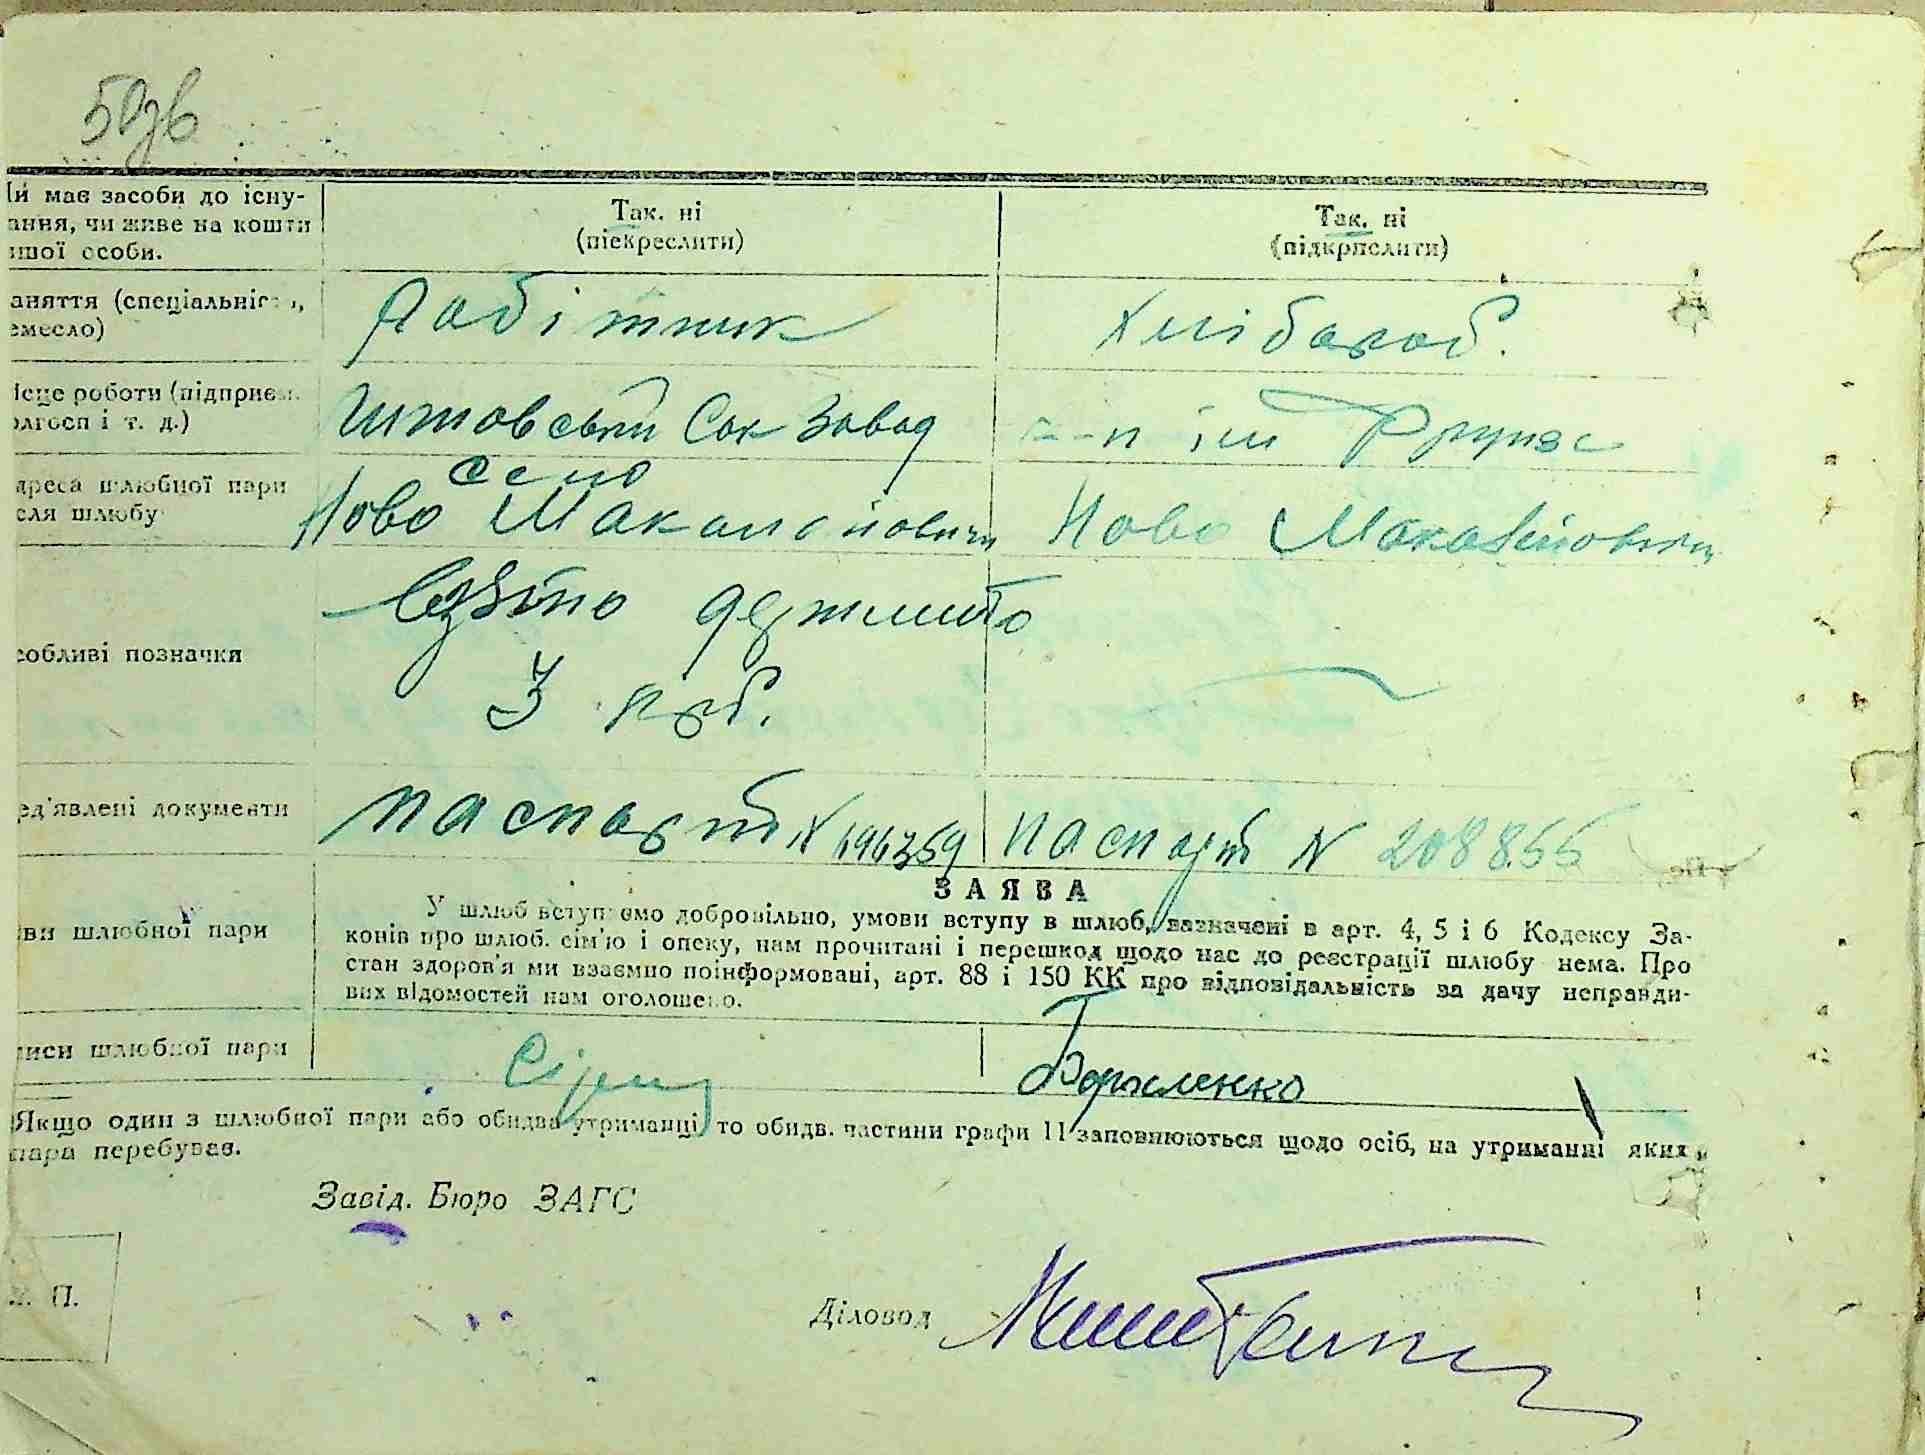 50зв
и має засоби до існу-
ання, чи живе на кошти
ншої особи.
Так. ні
(піекреслити)
Так. ні
(підкрпслити)
аняття (спеціальність,
емесло)
Робітник
Хлібороб.
ісце роботи (підприєм.
олгосп і т. д.)
Сах Завод
ім Фрунзе
дреса шлюбної пари
сля шлюбу
село
Ново
Ново
собливі позначки
Взято держмито
3 крб.
ед'явлені документи
паспорт N
паспорт N 208855
ЗАЯВА
ви шлюбної пари
У шлюб вступаємо добровільно, умови вступу в шлюб, вазначені в арт. 4, 5 і 6 Кодексу За-
конів про шлюб. сім'ю і опеку, нам прочитані і перешкод щодо нас до реєстрації шлюбу нема. Про
стан здоров'я ми взаємно поінформовані, арт. 88 і 150 КК про відповідальність за дачу неправди-
вих відомостей нам оголошено.
писи шлюбної пари
Якщо один з шлюбної пари або обидва утриманці, то обидв. частини графи 11 заповнюються щодо осіб, на утриманні яких
пара перебуває.
Завід. Бюро ЗАГС
П.
Діловод